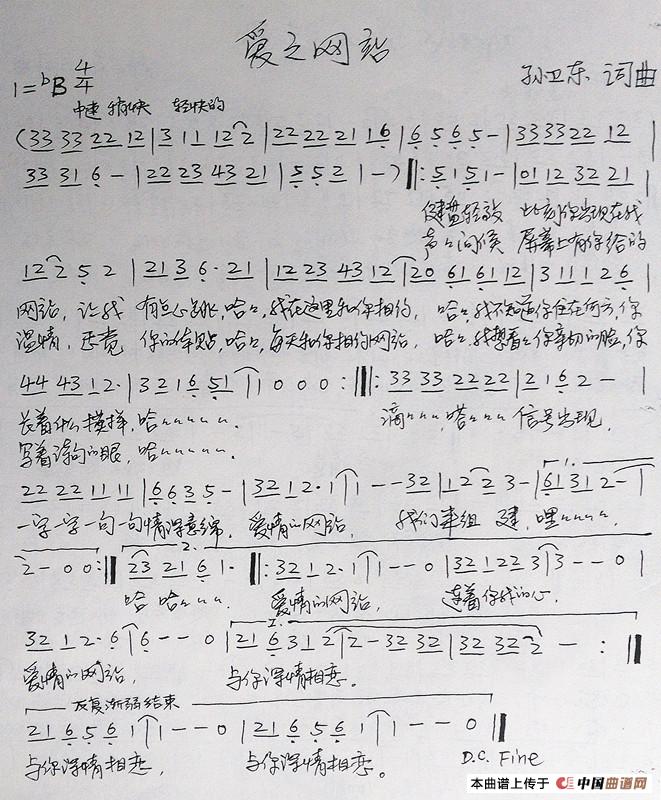 爱之网站
1=♭B 4/4
孙卫东 词曲
中速 稍快 轻快的
(33 33 22 12 | 3 1 1 12 2 | 22 22 21 16 | 6 5 6 5 - | 33 33 22 12 |
33 31 6 - | 22 23 43 21 | 5 5 2 1 -) ‖: 5 1 5 1 1 - | 01 12 32 21 |
键盘轻敲 此刻你出现在我
声声问候 屏幕上有你给的
12 2 5 2 | 21 3 6 · 21 | 12 23 43 12 | 20 61 61 12 | 3 1 1 1 2 6 |
网站,让我 有点心跳,哈哈,我在这里和你相约, 哈哈,我不知道你住在何方,你
温情, 感觉 你的体贴,哈哈,每天和你相约网站, 哈哈,我想着你亲切的脸,你
44 43 1 2· | 3 2 1 6 51 | 1 0 0 0 :‖: 33 33 22 22 | 2 1 6 2 - |
长着什么模样,哈
写着诗句的眼,哈
滴 嗒 信号出现,
22 22 11 11 | 6 6 3 5 - | 32 1 2· 1 | 1 - - 32 | 1 2 2 3 - | 61 31 2 - |
一字一字一句一句情深意绵, 爱情的网站, 我们来组建,嘿
2 - 0 0 :‖ 23 21 6 1· ‖: 32 1 2· 1 | 1 - - 0 | 32 12 2 3 | 3 - - 0 |
哈 哈 爱情的网站, 连着你我的心,
32 1 2· 6 | 6 - - 0 | 21 6 3 1 2 | 2 - 32 32 | 32 32 2 - :‖
爱情的网站, 与你深情相恋。
反复渐弱结束
21 6 5 6 1 | 1 - - 0 | 21 6 5 6 1 | 1 - - 0 ‖
与你深情相恋, 与你深情相恋。 D.C. Fine
本曲谱上传于 中国曲谱网